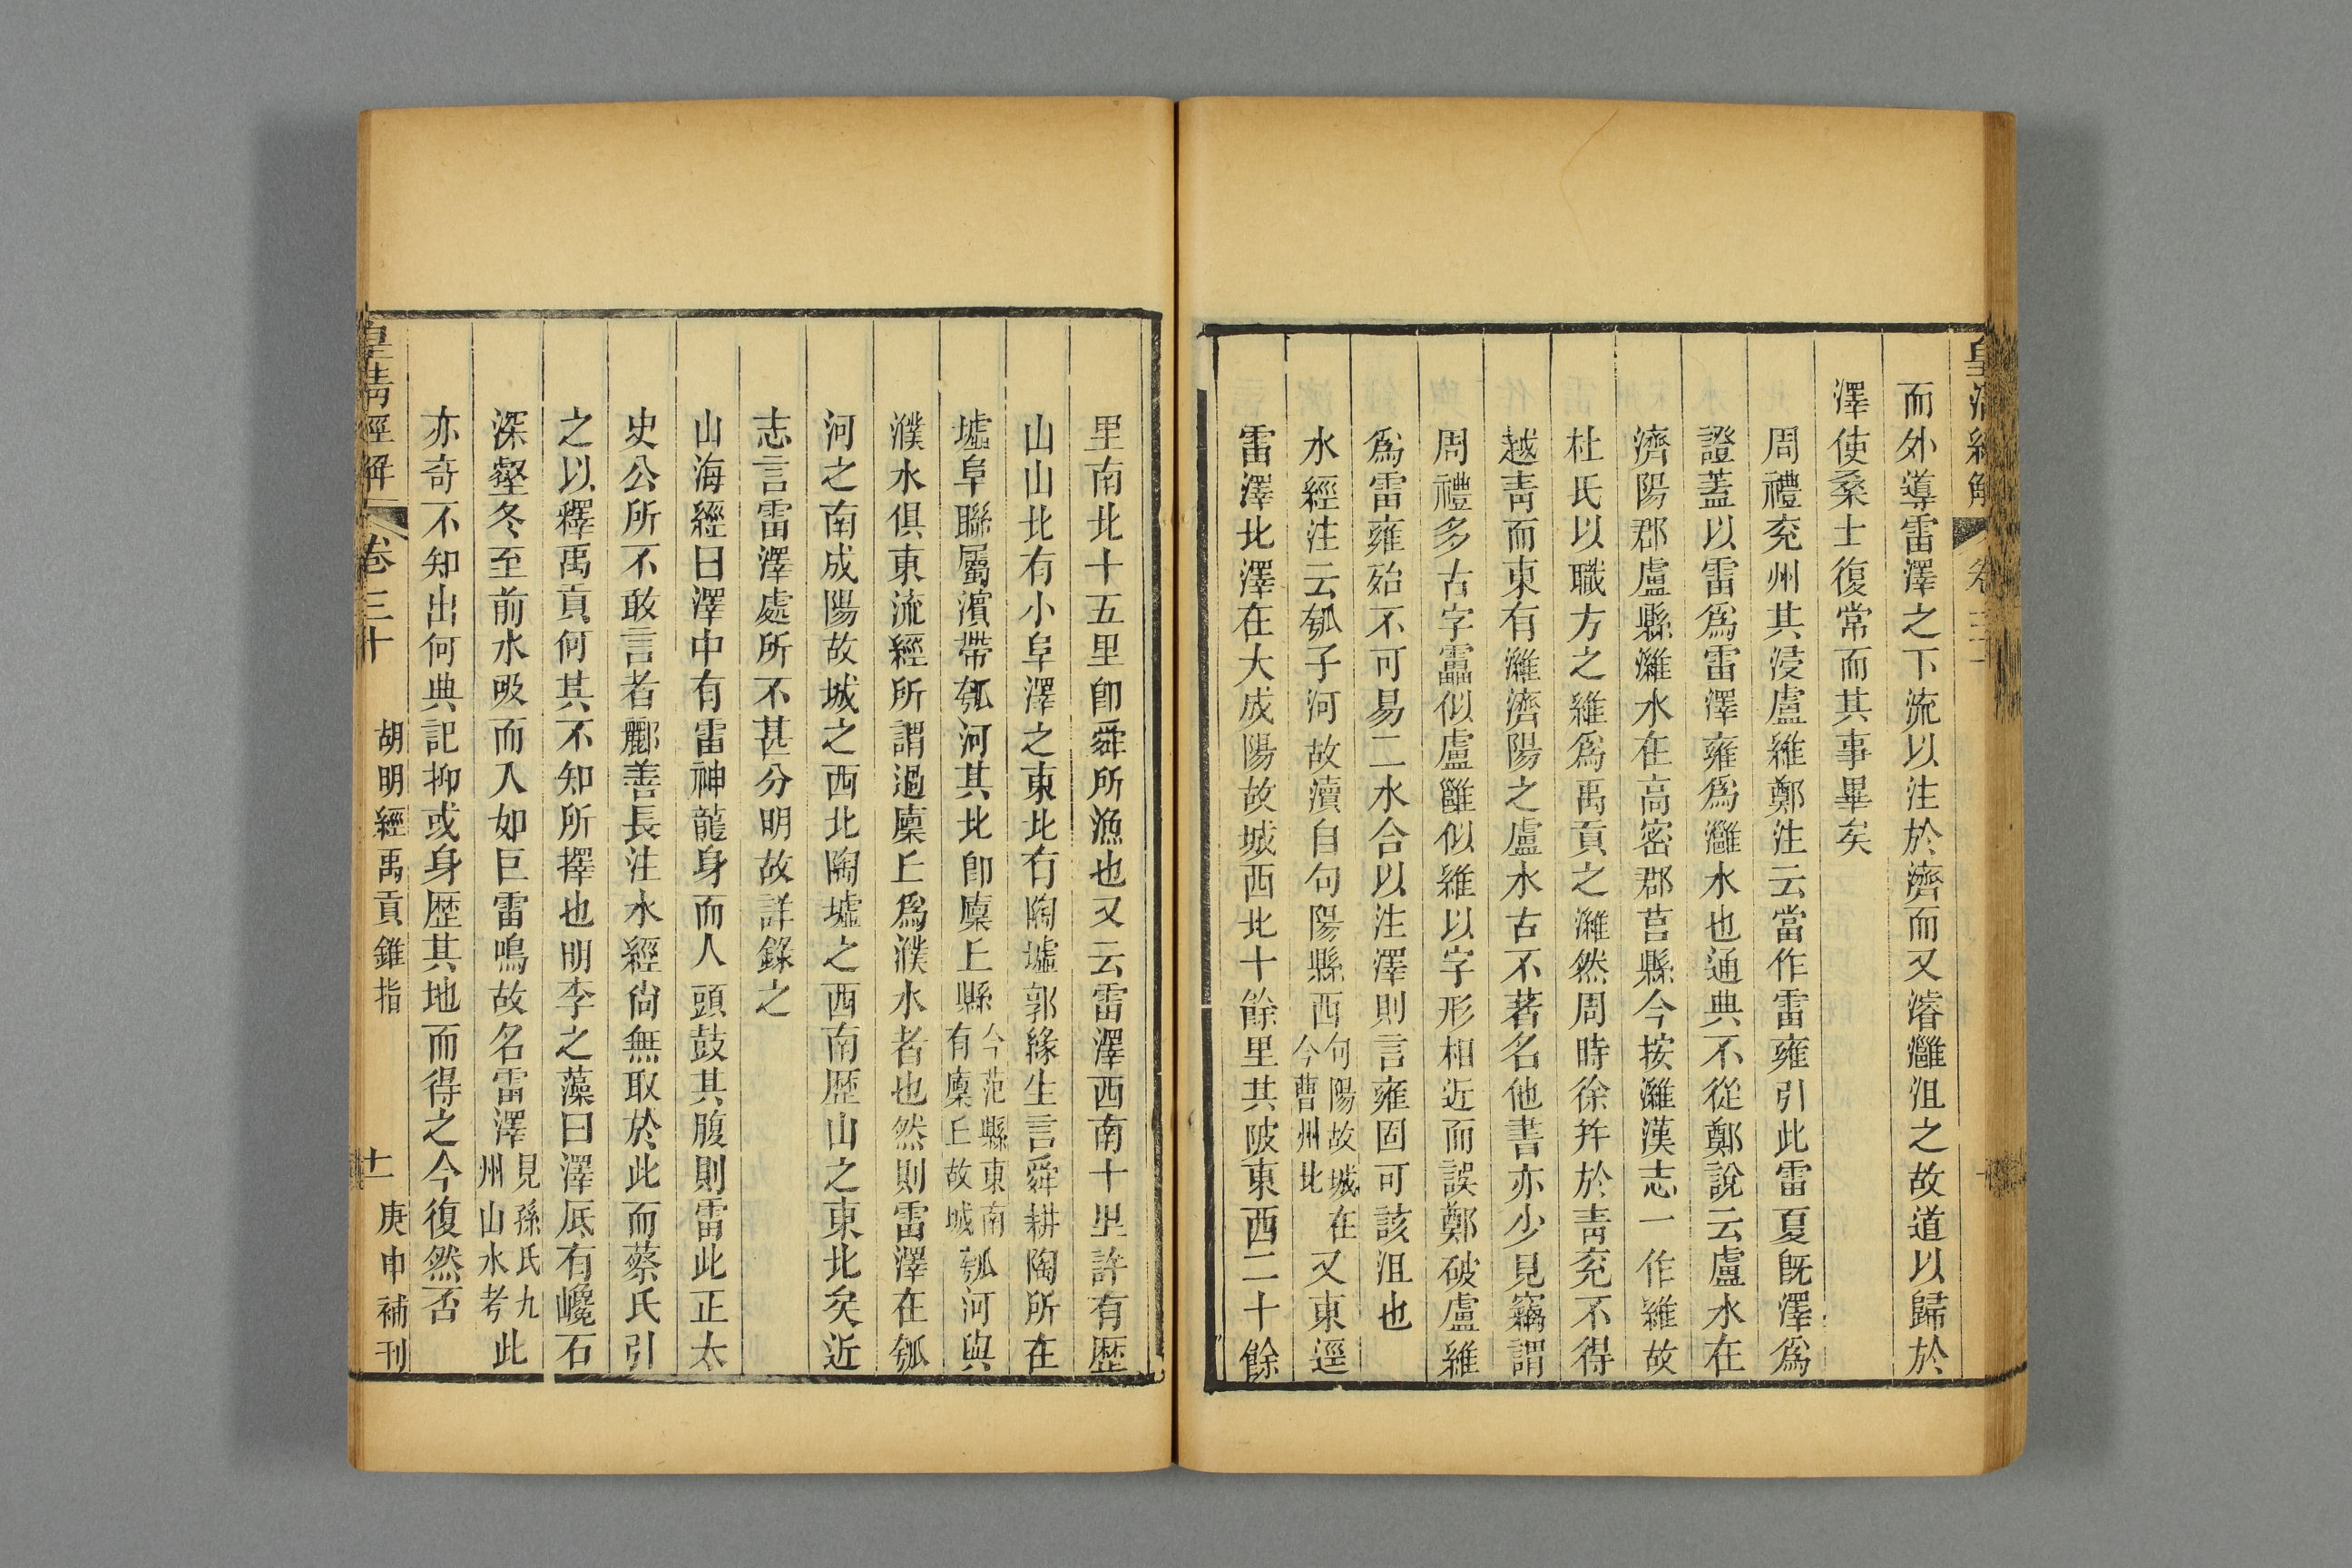 皇清經解 卷三十
而外導雷澤之下流以注於濟而又濬灉沮之故道以歸於
澤使桑士復常而其事畢矣
周禮兗州其浸盧維鄭注云當作雷雍引此雷夏旣澤爲
證蓋以雷爲雷澤雍爲灉水也通典不從鄭說云盧水在
濟陽郡盧縣濰水在高密郡莒縣今按濰漢志一作維故
杜氏以職方之維爲禹貢之濰然周時徐幷於靑兗不得
越靑而東有濰濟陽之盧水古不著名他書亦少見竊謂
周禮多古字靁似盧雝似維以字形相近而誤鄭破盧維
爲雷雍殆不可易二水合以注澤則言雍固可該沮也
水經注云瓠子河故瀆自句陽縣西句陽故城在今曹州北又東逕
雷澤北澤在大成陽故城西北十餘里其陂東西二十餘
里南北十五里卽舜所漁也又云雷澤西南十里許有歷
山山北有小阜澤之東北有陶墟郭緣生言舜耕陶所在
墟阜聯屬濱帶瓠河其北卽廩丘縣今范縣東南有廩丘故城瓠河與
濮水俱東流經所謂過廩丘爲濮水者也然則雷澤在瓠
河之南成陽故城之西北陶墟之西南歷山之東北矣近
志言雷澤處所不甚分明故詳錄之
山海經曰澤中有雷神龍身而人頭鼓其腹則雷此正太
史公所不敢言者酈善長注水經尙無取於此而蔡氏引
之以釋禹貢何其不知所擇也明李之藻曰澤底有巉石
深壑冬至前水吸而入如巨雷鳴故名雷澤見孫氏九州山水考此
亦奇不知出何典記抑或身歷其地而得之今復然否
皇清經解 卷三十 胡明經禹貢錐指 十一 庚申補刊